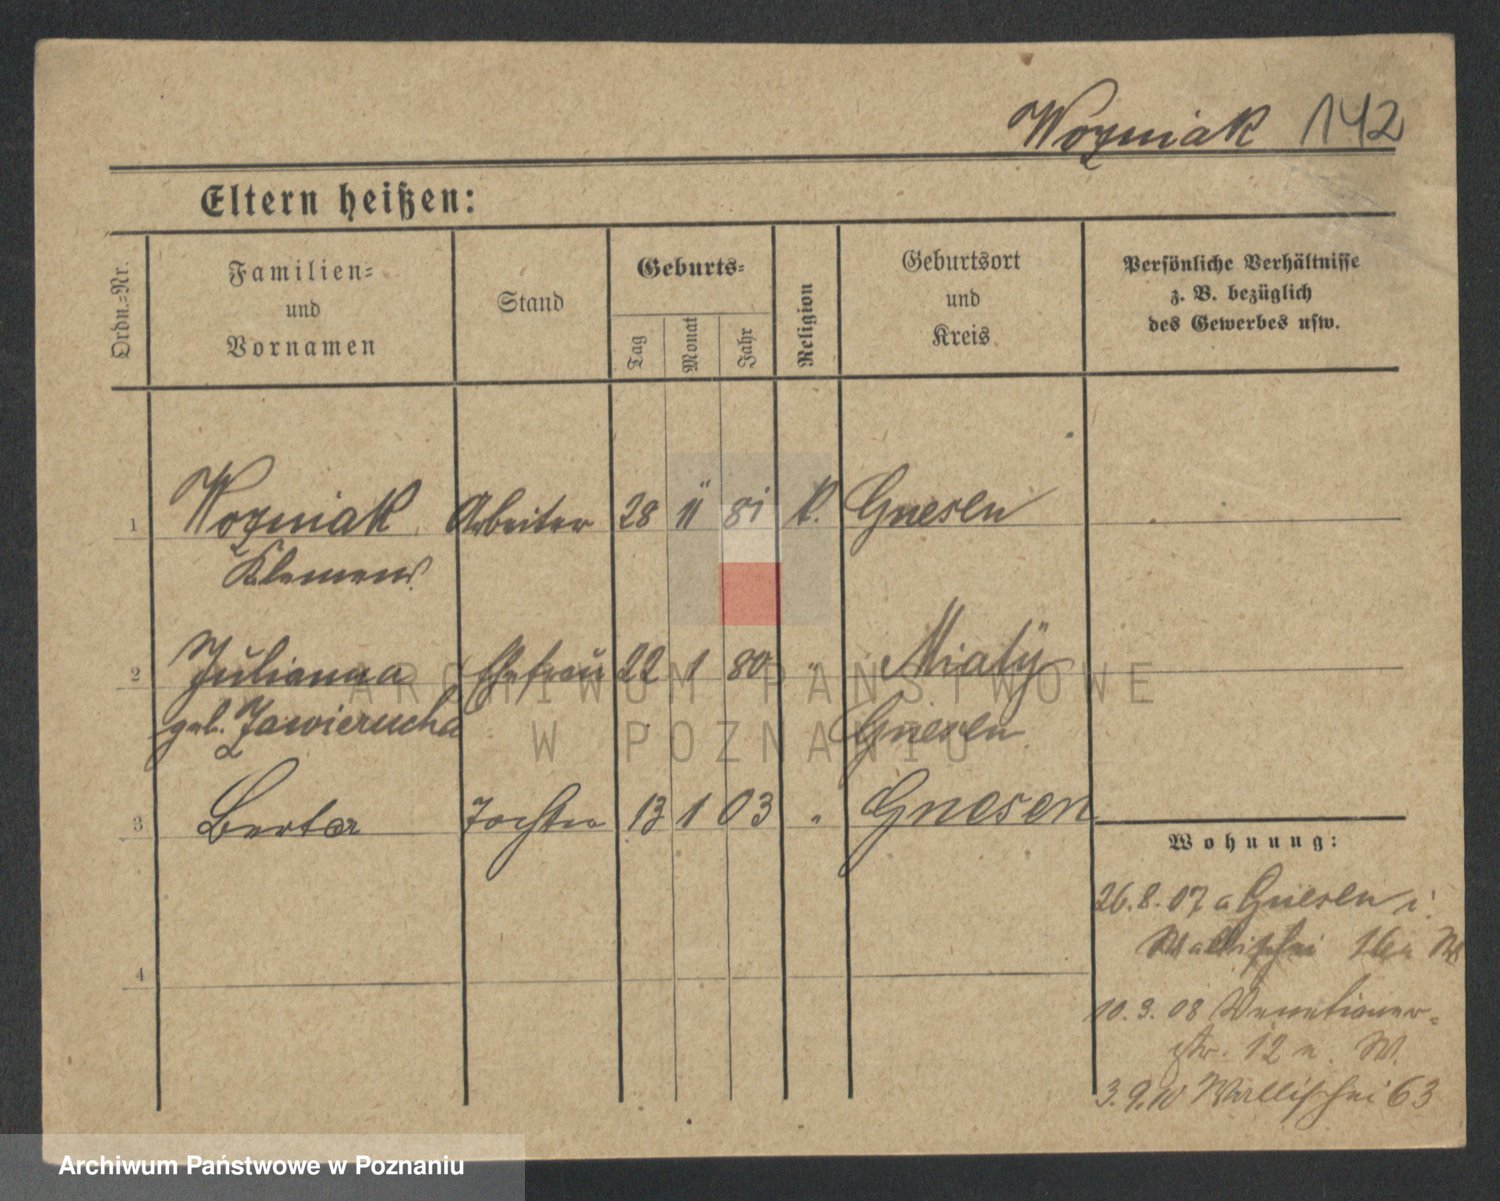 Wozniak 142
Eltern heißen:
Ordn.=Nr.
Familien=
und
Vornamen
Stand
Geburts=
Tag
Monat
Jahr
Religion
Geburtsort
und
Kreis
Persönliche Verhältnisse
z. B. bezüglich
des Gewerbes usw.
1 Wozniak Arbeiter 28 11 81 k. Gnesen
Klemens
2 Julianna Ehefrau 22 1 80 " Mialy
geb. Zawierucha Gnesen
3 Berta Tochter 13 1 03 " Gnesen
Wohnung:
26.8.07 a Gnesen i.
Wallischei 16a W
4
10.3.08 Venetianer-
str. 12 W.
3.9.10 Wallischei 63
ARCHIWUM PAŃSTWOWE
W POZNANIU
Archiwum Państwowe w Poznaniu